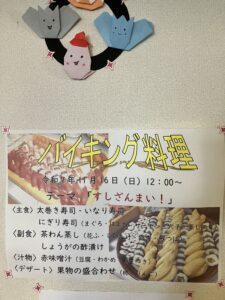 バイキング料理
令和7年11月16日（日）12：00～
テーマ「すしざんまい！」
〈主食〉太巻き寿司・いなり寿司
にぎり寿司（まぐろ・
〈副食〉茶わん蒸し（花ふ・
しょうがの酢漬け
〈汁物〉赤味噌汁（豆腐・わかめ
〈デザート〉果物の盛合わせ